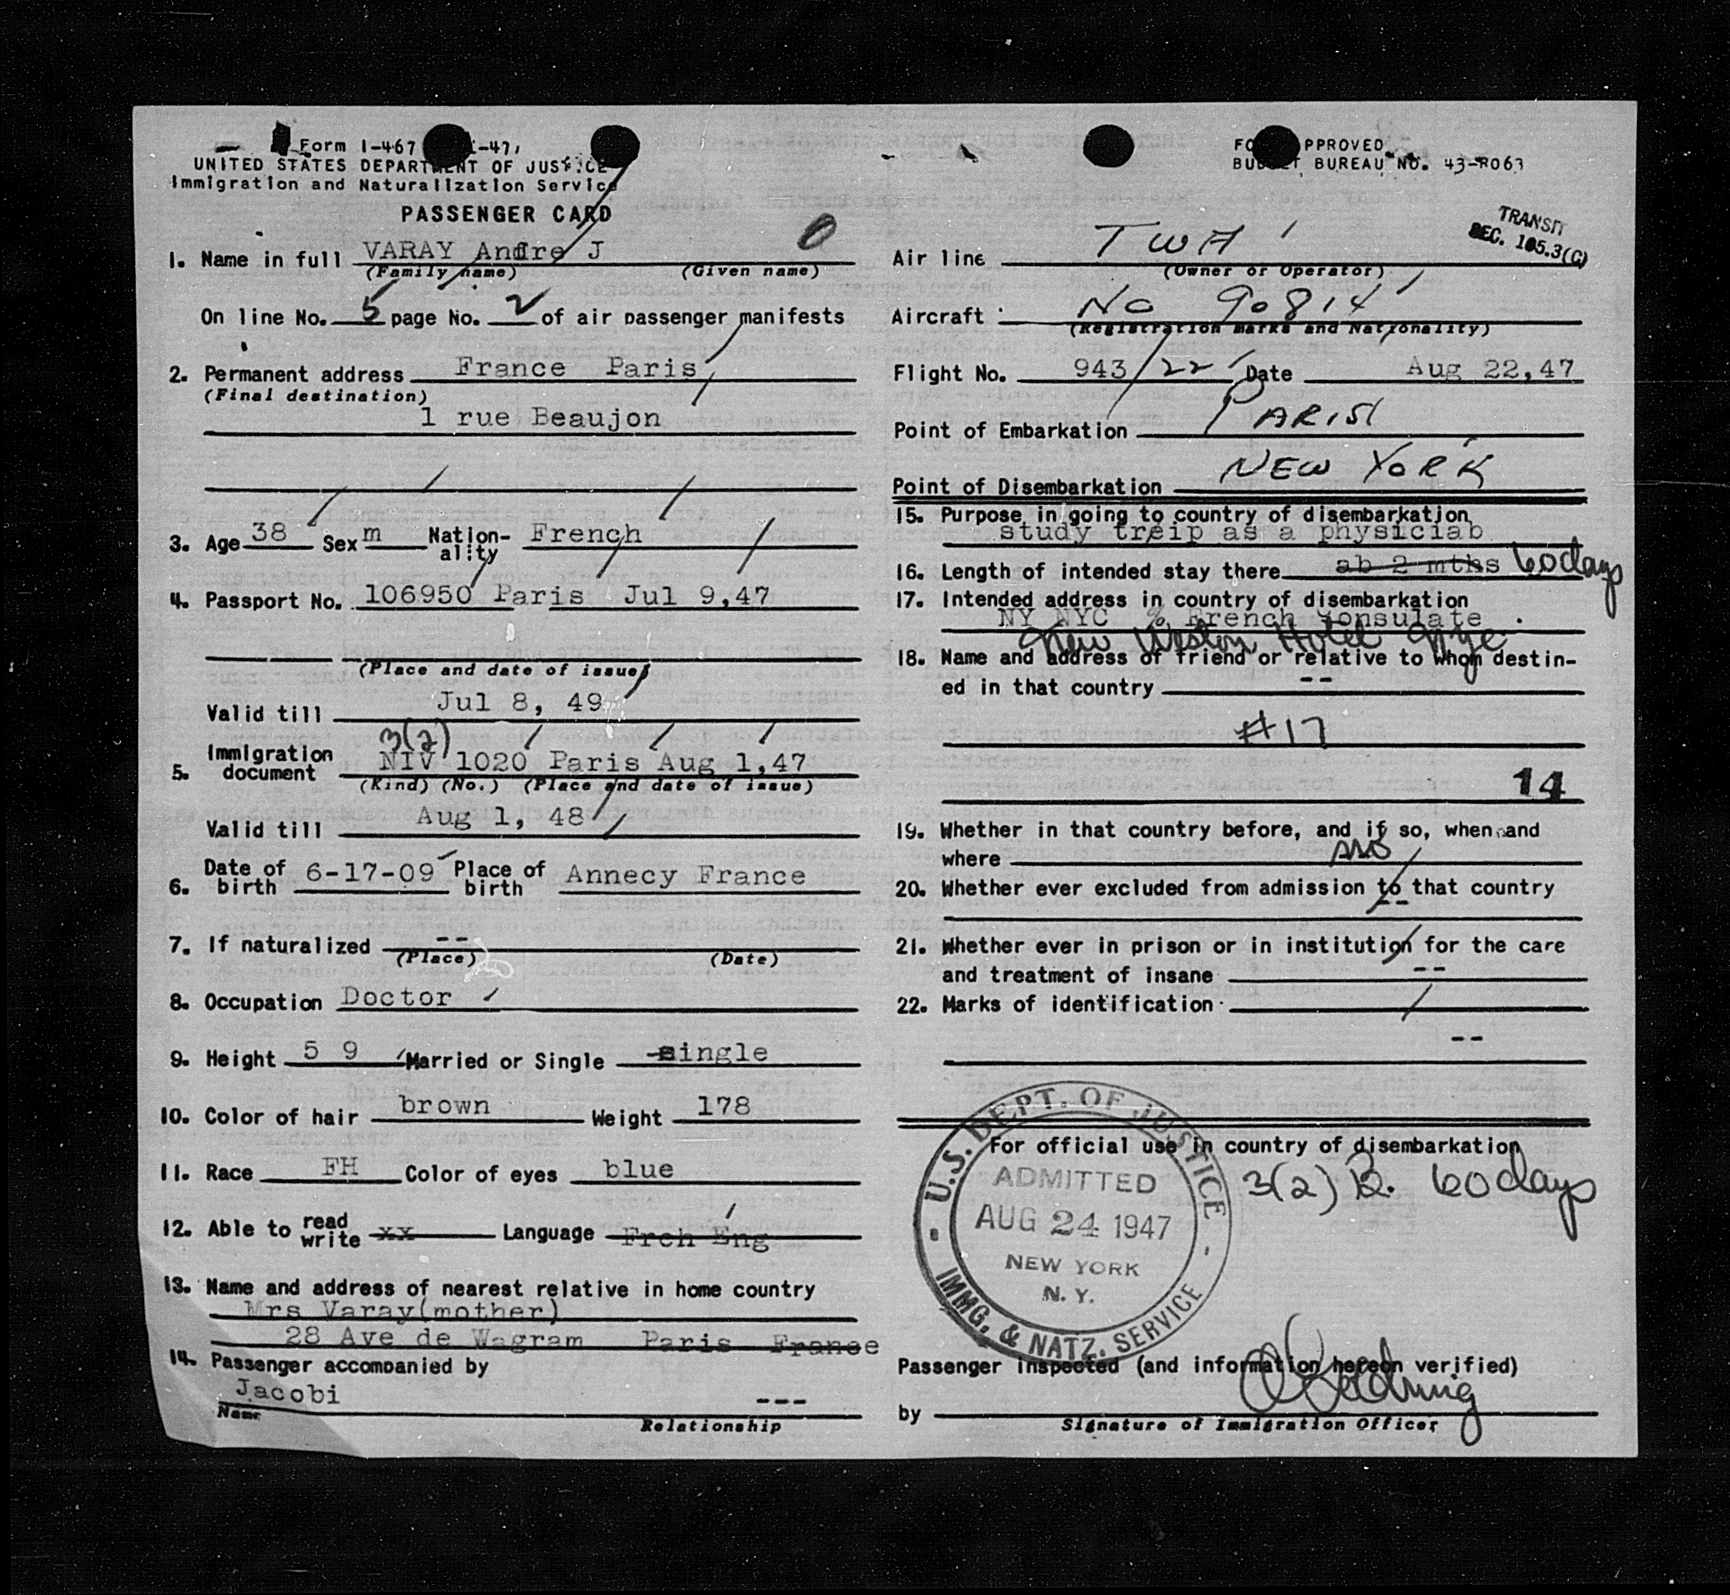 Form I-467
UNITED STATES DEPARTMENT OF JUSTICE
Immigration and Naturalization Service
PASSENGER CARD
1. Name in full VARAY Andre J
(Family name) (Given name)
On line No. 5 page No. 2 of air passenger manifests
2. Permanent address France Paris
(Final destination)
1 rue Beaujon
3. Age 38 Sex m Nation-ality French
4. Passport No. 106950 Paris Jul 9,47
(Place and date of issue)
Valid till Jul 8, 49
3(2)
5. Immigration document NIV 1020 Paris Aug 1,47
(Kind) (No.) (Place and date of issue)
Valid till Aug 1, 48
6. Date of birth 6-17-09 Place of birth Annecy France
7. If naturalized --
(Place) (Date)
8. Occupation Doctor
9. Height 5 9 Married or Single single
10. Color of hair brown Weight 178
11. Race FH Color of eyes blue
12. Able to read write xx Language Frch Eng
13. Name and address of nearest relative in home country
Mrs Varay(mother)
28 Ave de Wagram Paris France
14. Passenger accompanied by
Jacobi ---
Name Relationship
FORM APPROVED
BUDGET BUREAU NO. 43-R063
TRANSIT
SEC. 105.3(C)
Air line TWA
(Owner or Operator)
Aircraft NC 90814
(Registration marks and Nationality)
Flight No. 943/22 Date Aug 22,47
Point of Embarkation PARIS
Point of Disembarkation NEW YORK
15. Purpose in going to country of disembarkation
study treip as a physiciab
16. Length of intended stay there ab 2 mths 60 days
17. Intended address in country of disembarkation
NY NYC % French Consulate
New Weston Hotel nyc
18. Name and address of friend or relative to whom destin-
ed in that country --
#17
14
19. Whether in that country before, and if so, when and
where no
20. Whether ever excluded from admission to that country
--
21. Whether ever in prison or in institution for the care
and treatment of insane --
22. Marks of identification
--
For official use in country of disembarkation
3(2) B. 60 days
U.S. DEPT. OF JUSTICE
ADMITTED
AUG 24 1947
NEW YORK
N. Y.
IMMG. & NATZ. SERVICE
Passenger inspected (and information hereon verified)
by
Signature of Immigration Officer